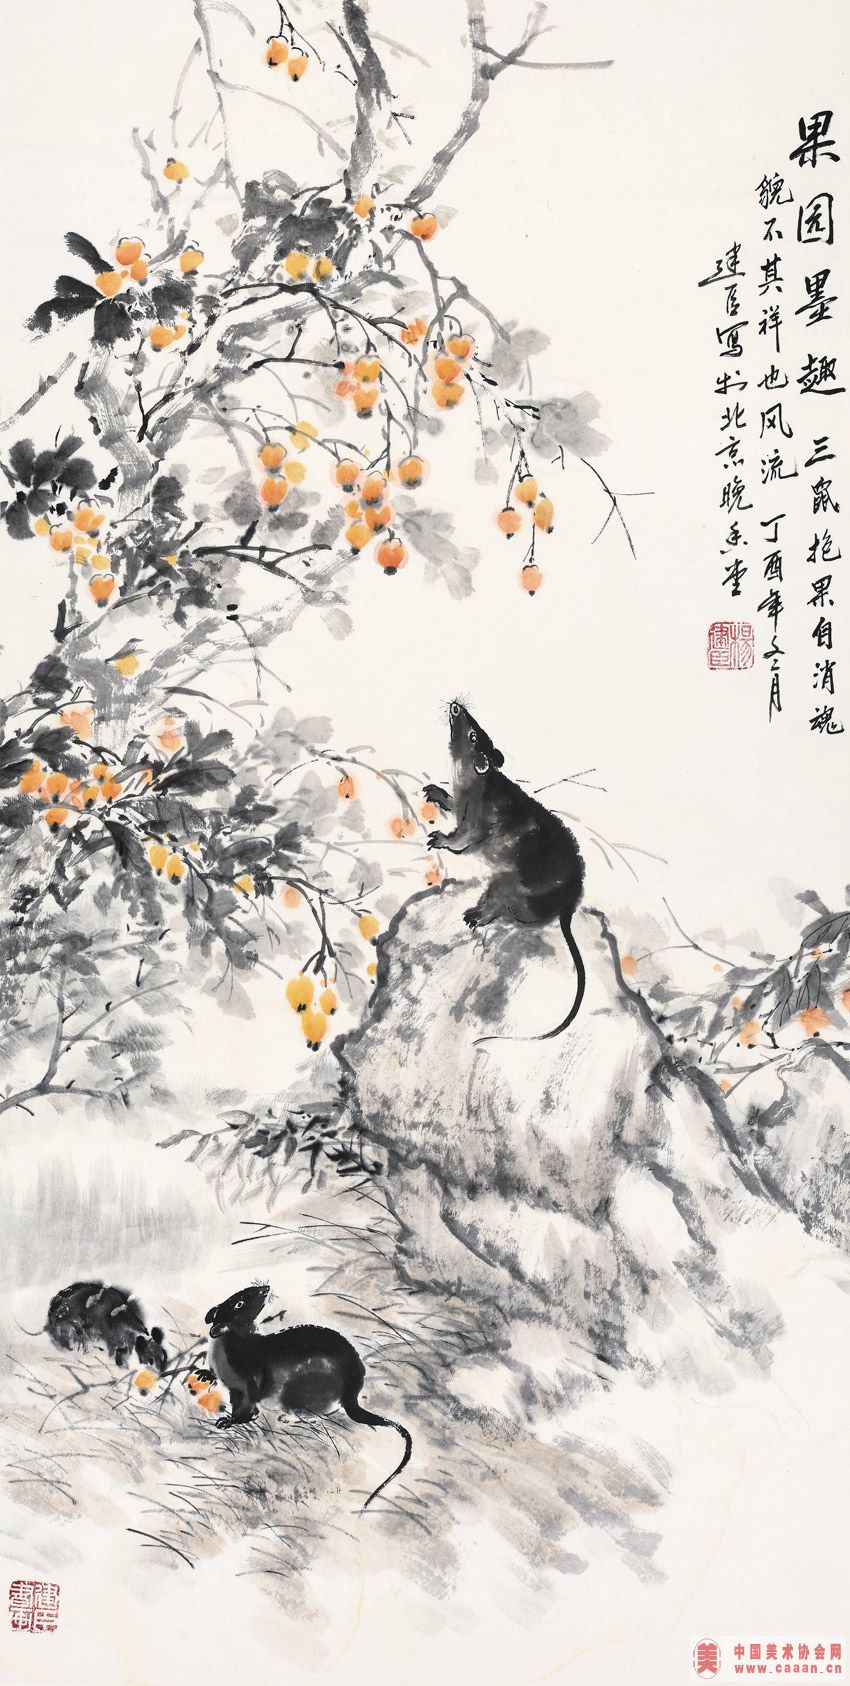 果园墨趣 三鼠抱果自消魂
貌不其祥也风流 丁酉年文二月
建臣写于北京晚香堂
楊建臣
建臣書畫
中国美术协会网
www.caaan.cn